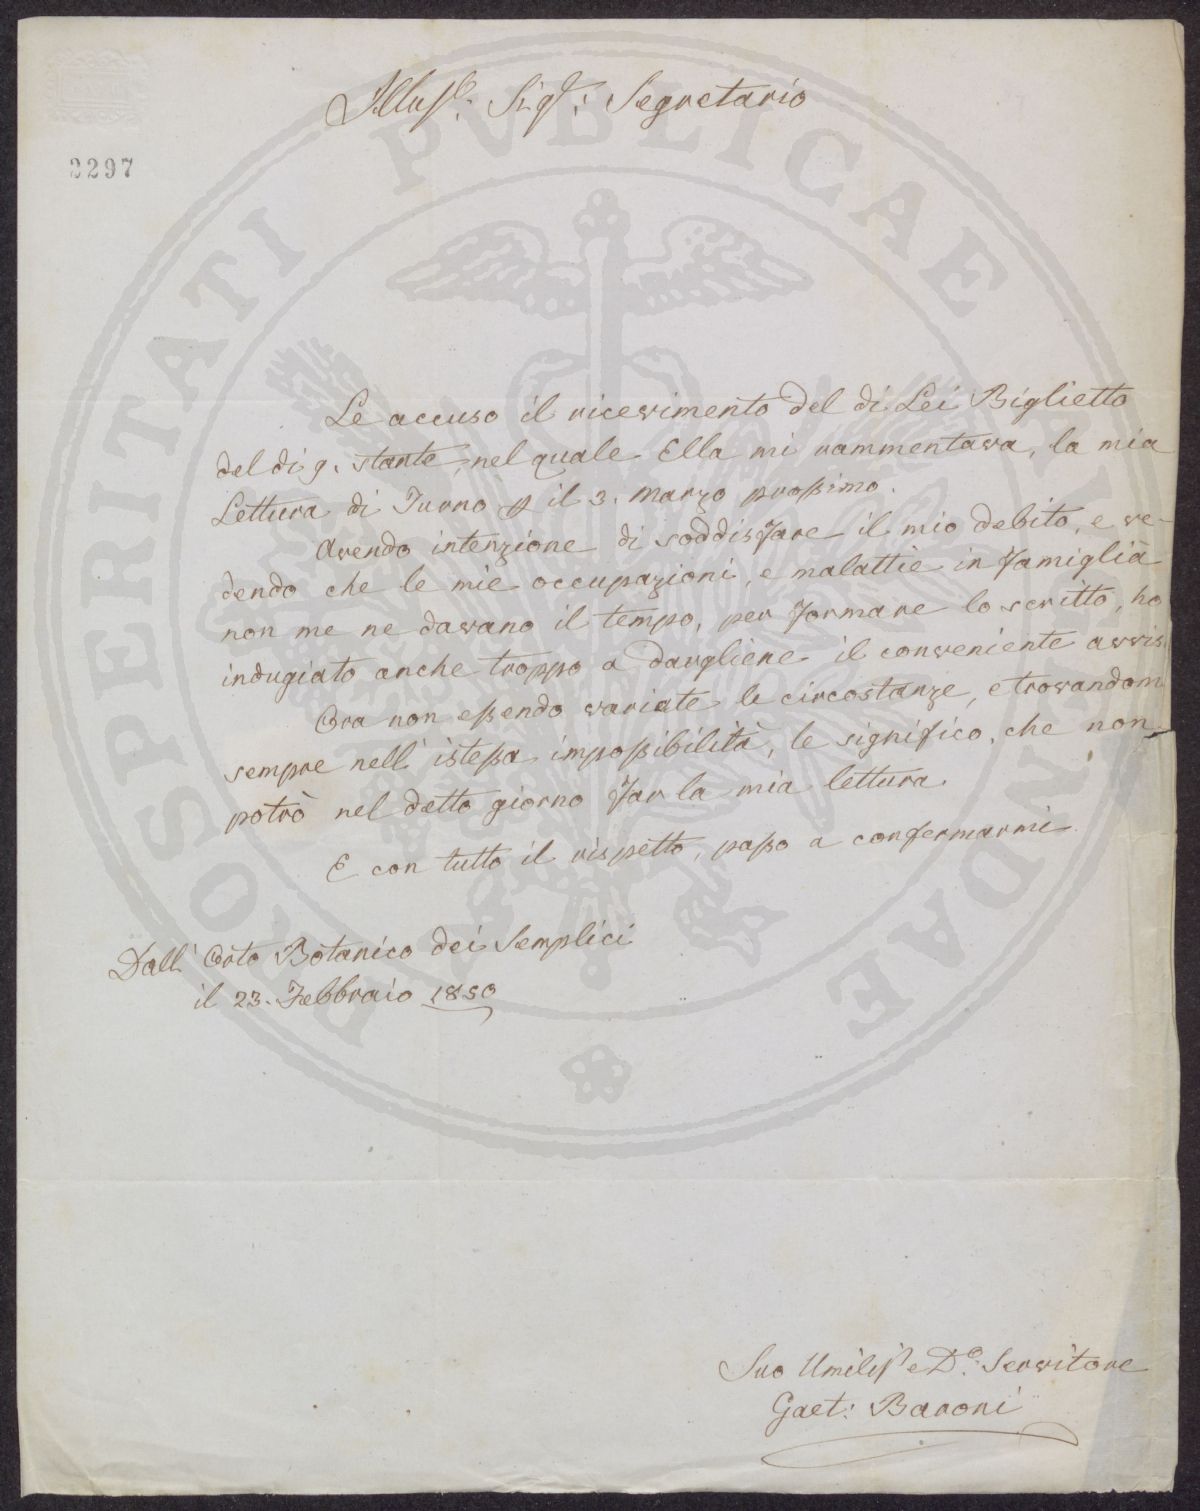 Illus.º: Sig.r: Segretario
2297
Le accuso il ricevimento del di Lei Biglietto
del di 9. stante, nel quale Ella mi rammentava, la mia
Lettura di Turno p il 3. Marzo prossimo.
Avendo intenzione di soddisfare il mio debito, e ve-
dendo che le mie occupazioni, e malattie in famiglia
non me ne davano il tempo, per formare lo scritto, ho
indugiato anche troppo a dargliene il conveniente avvis
Ora non essendo variate le circostanze, e trovandom
sempre nell' istessa impossibilità, le significo, che non
potrò nel detto giorno far la mia lettura.
E con tutto il rispetto, passo a confermarmi
Dall' Orto Botanico dei Semplici
il 23. Febbraio 1850
Suo Umilis.º e D.º: Servitore
Gaet: Baroni
PROSPERITATI PVBLICAE AVGENDAE